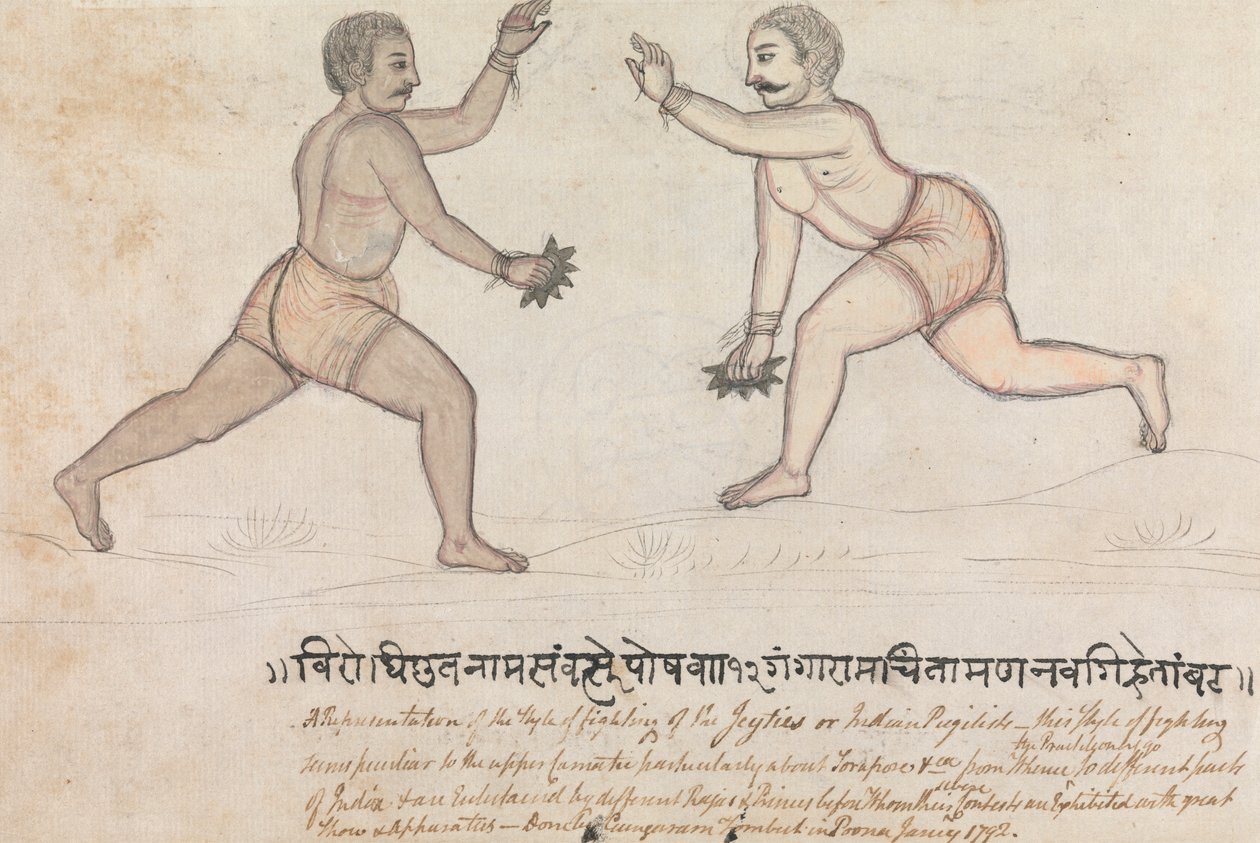 ॥ विरोधीकृतनाम संवत्सरे पोष व॥ १२ गंगाराम चिंतामण नवगिरे तांबट ॥
A Representation of the Style of fighting of the Jeyties or Indian Pugilists — this Style of fighting
seems peculiar to the upper Carnatic particularly about Sorapore &ca from Whence the Practitioners go to different parts
of India & are Entertained by different Rajas & Princes before Whom their Contests are Exhibited with great
Show & Apparatus — Done by Gungaram Tombut in Poona Jany 1792.